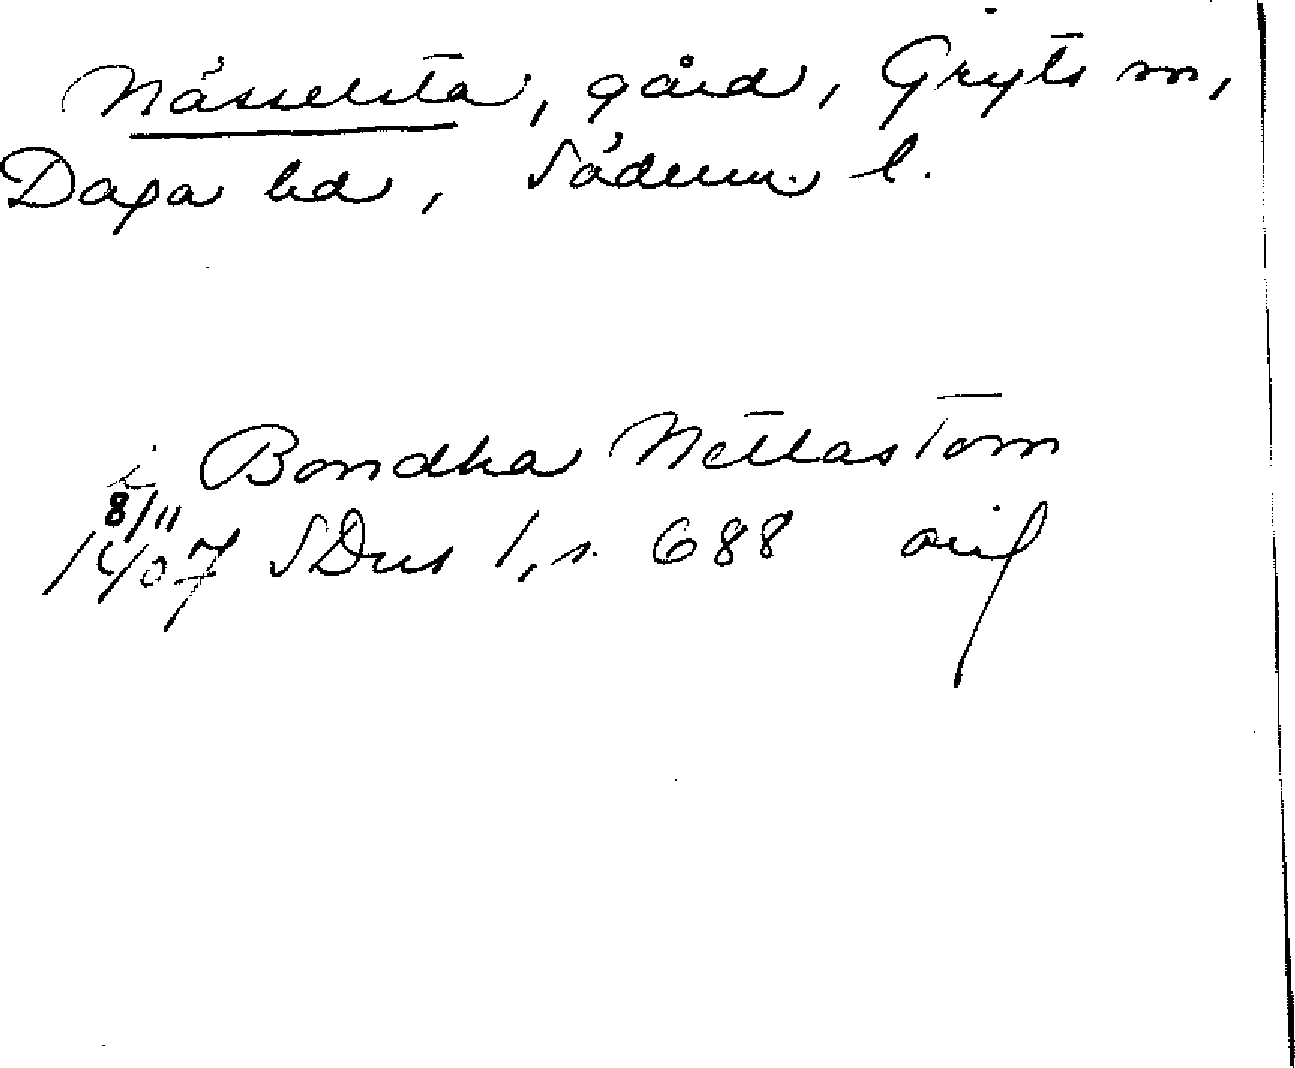 Nässelsta, gård, Gryts sn,
Daga hd, Söderm. l.
i Bondha Netlastom
8/11
1407 SDns 1, s. 688 orig